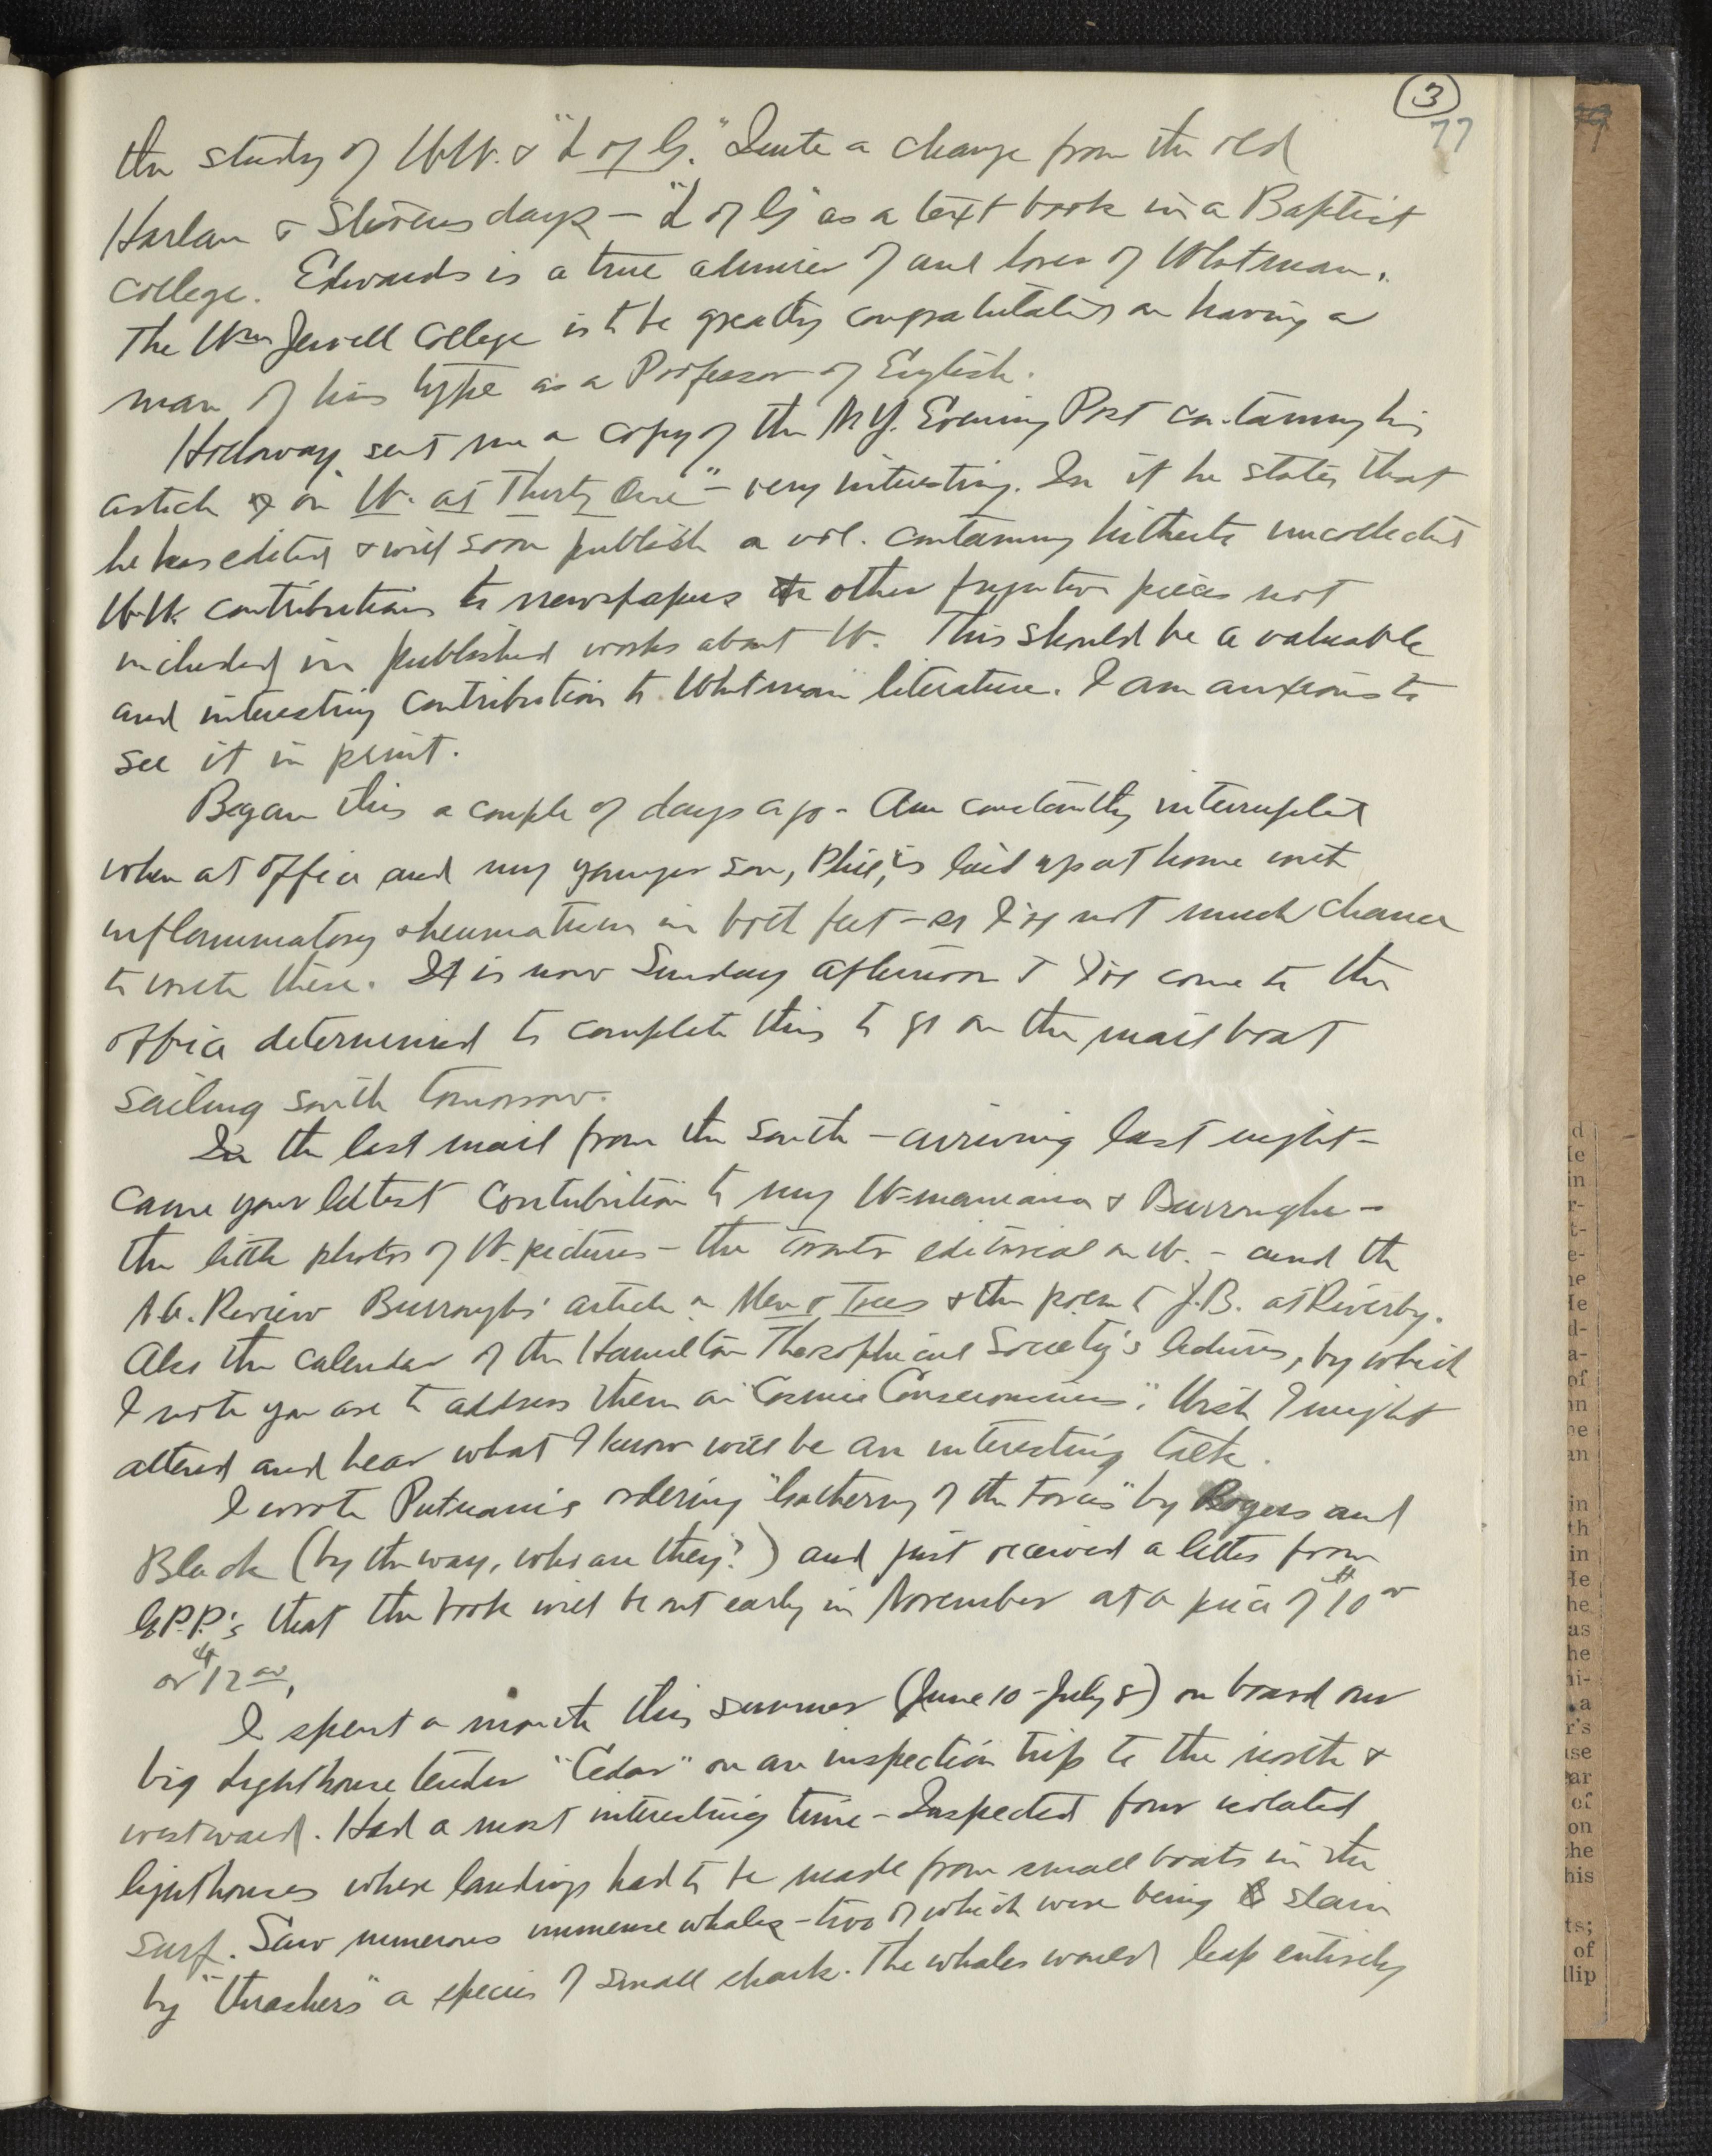 3
77
the study of W.W. & "L of G." Quite a change from the old
Harlan & Stevens days — "L of G" as a text book in a Baptist
College. Edwards is a true admirer of and lover of Whitman.
The Wm Jewell College is to be greatly congratulated on having a
man of his type as a Professor of English.
Holloway sent me a copy of the N.Y. Evening Post containing his
article on "W. at Thirty One" – very interesting. In it he states that
he has edited & will soon publish a vol. containing hitherto uncollected
W.W. contributions to newspapers & other fugitive pieces not
included in published works about W. This should be a valuable
and interesting contribution to Whitman literature. I am anxious to
see it in print.
Began this a couple of days ago – Am constantly interrupted
when at office and my younger son, Phil, is laid up at home with
inflammatory rheumatism in both feet – so I've not much chance
to write there. It is now Sunday afternoon & I've come to the
office determined to complete this to go on the mail boat
sailing south tomorrow.
In the last mail from the south – arriving last night –
came your latest contribution to my W-maniana & Burroughs –
the little photos of W. pictures – the Toronto editorial on W. – and the
N.A. Review Burroughs' article on Men & Trees & the poem to J.B. at Riverby.
Also the calendar of the Hamilton Theosophical Society's lectures, by which
I note you are to address them on "Cosmic Consciousness". Wish I might
attend and hear what I know will be an interesting talk.
I wrote Putnam's ordering "Gathering of the Forces" by Rogers and
Black (by the way, who are they?) and just received a letter from
G.P.P.'s that the book will be out early in November at a price of $10.00
or $12.00.
I spent a month this summer (June 10 – July 8) on board our
big Lighthouse tender "Cedar" on an inspection trip to the north &
westward. Had a most interesting time – Inspected four isolated
lighthouses where landings had to be made from small boats in the
surf. Saw numerous immense whales – two of which were being slain
by "thrashers" a species of small shark. The whales would leap entirely